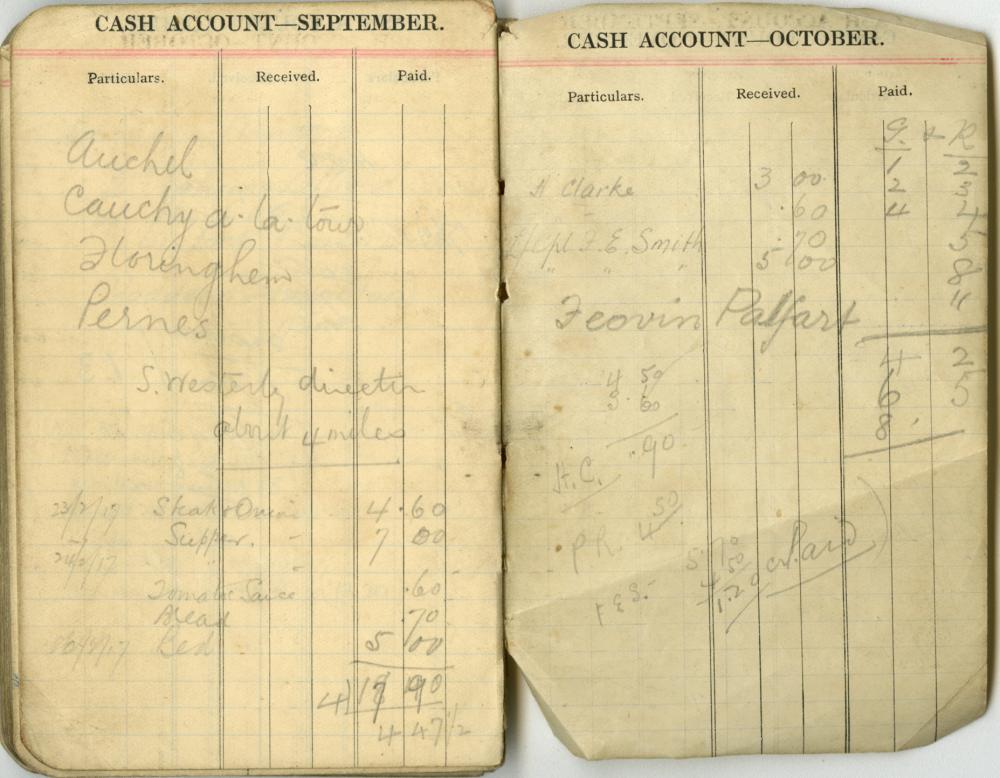 CASH ACCOUNT—SEPTEMBER.
Particulars. Received. Paid.
Auchel
Cauchy a. la. tour
Floringhem
Pernes
S. Westerly direction
about 4 miles
23/2/17 Steak & Onions 4.60
Supper. " 7 00
24/2/17 "
Tomatoe Sauce .60
Bread .70
Bed 5 00
4) 17 90
4 47 1/2
CASH ACCOUNT—OCTOBER.
Particulars. Received. Paid.
G. & R
1 2
H Clarke 3 00 2 3
" .60 4 4
L/Cpl F. E. Smith .70 5
" " " 5 00 8
Feovin Palfart 11
4 50 4 2
3. 60 6 5
.90 8
H. C.
50
P R. 4
5.70
4 50 Paid
F E S. 1.20